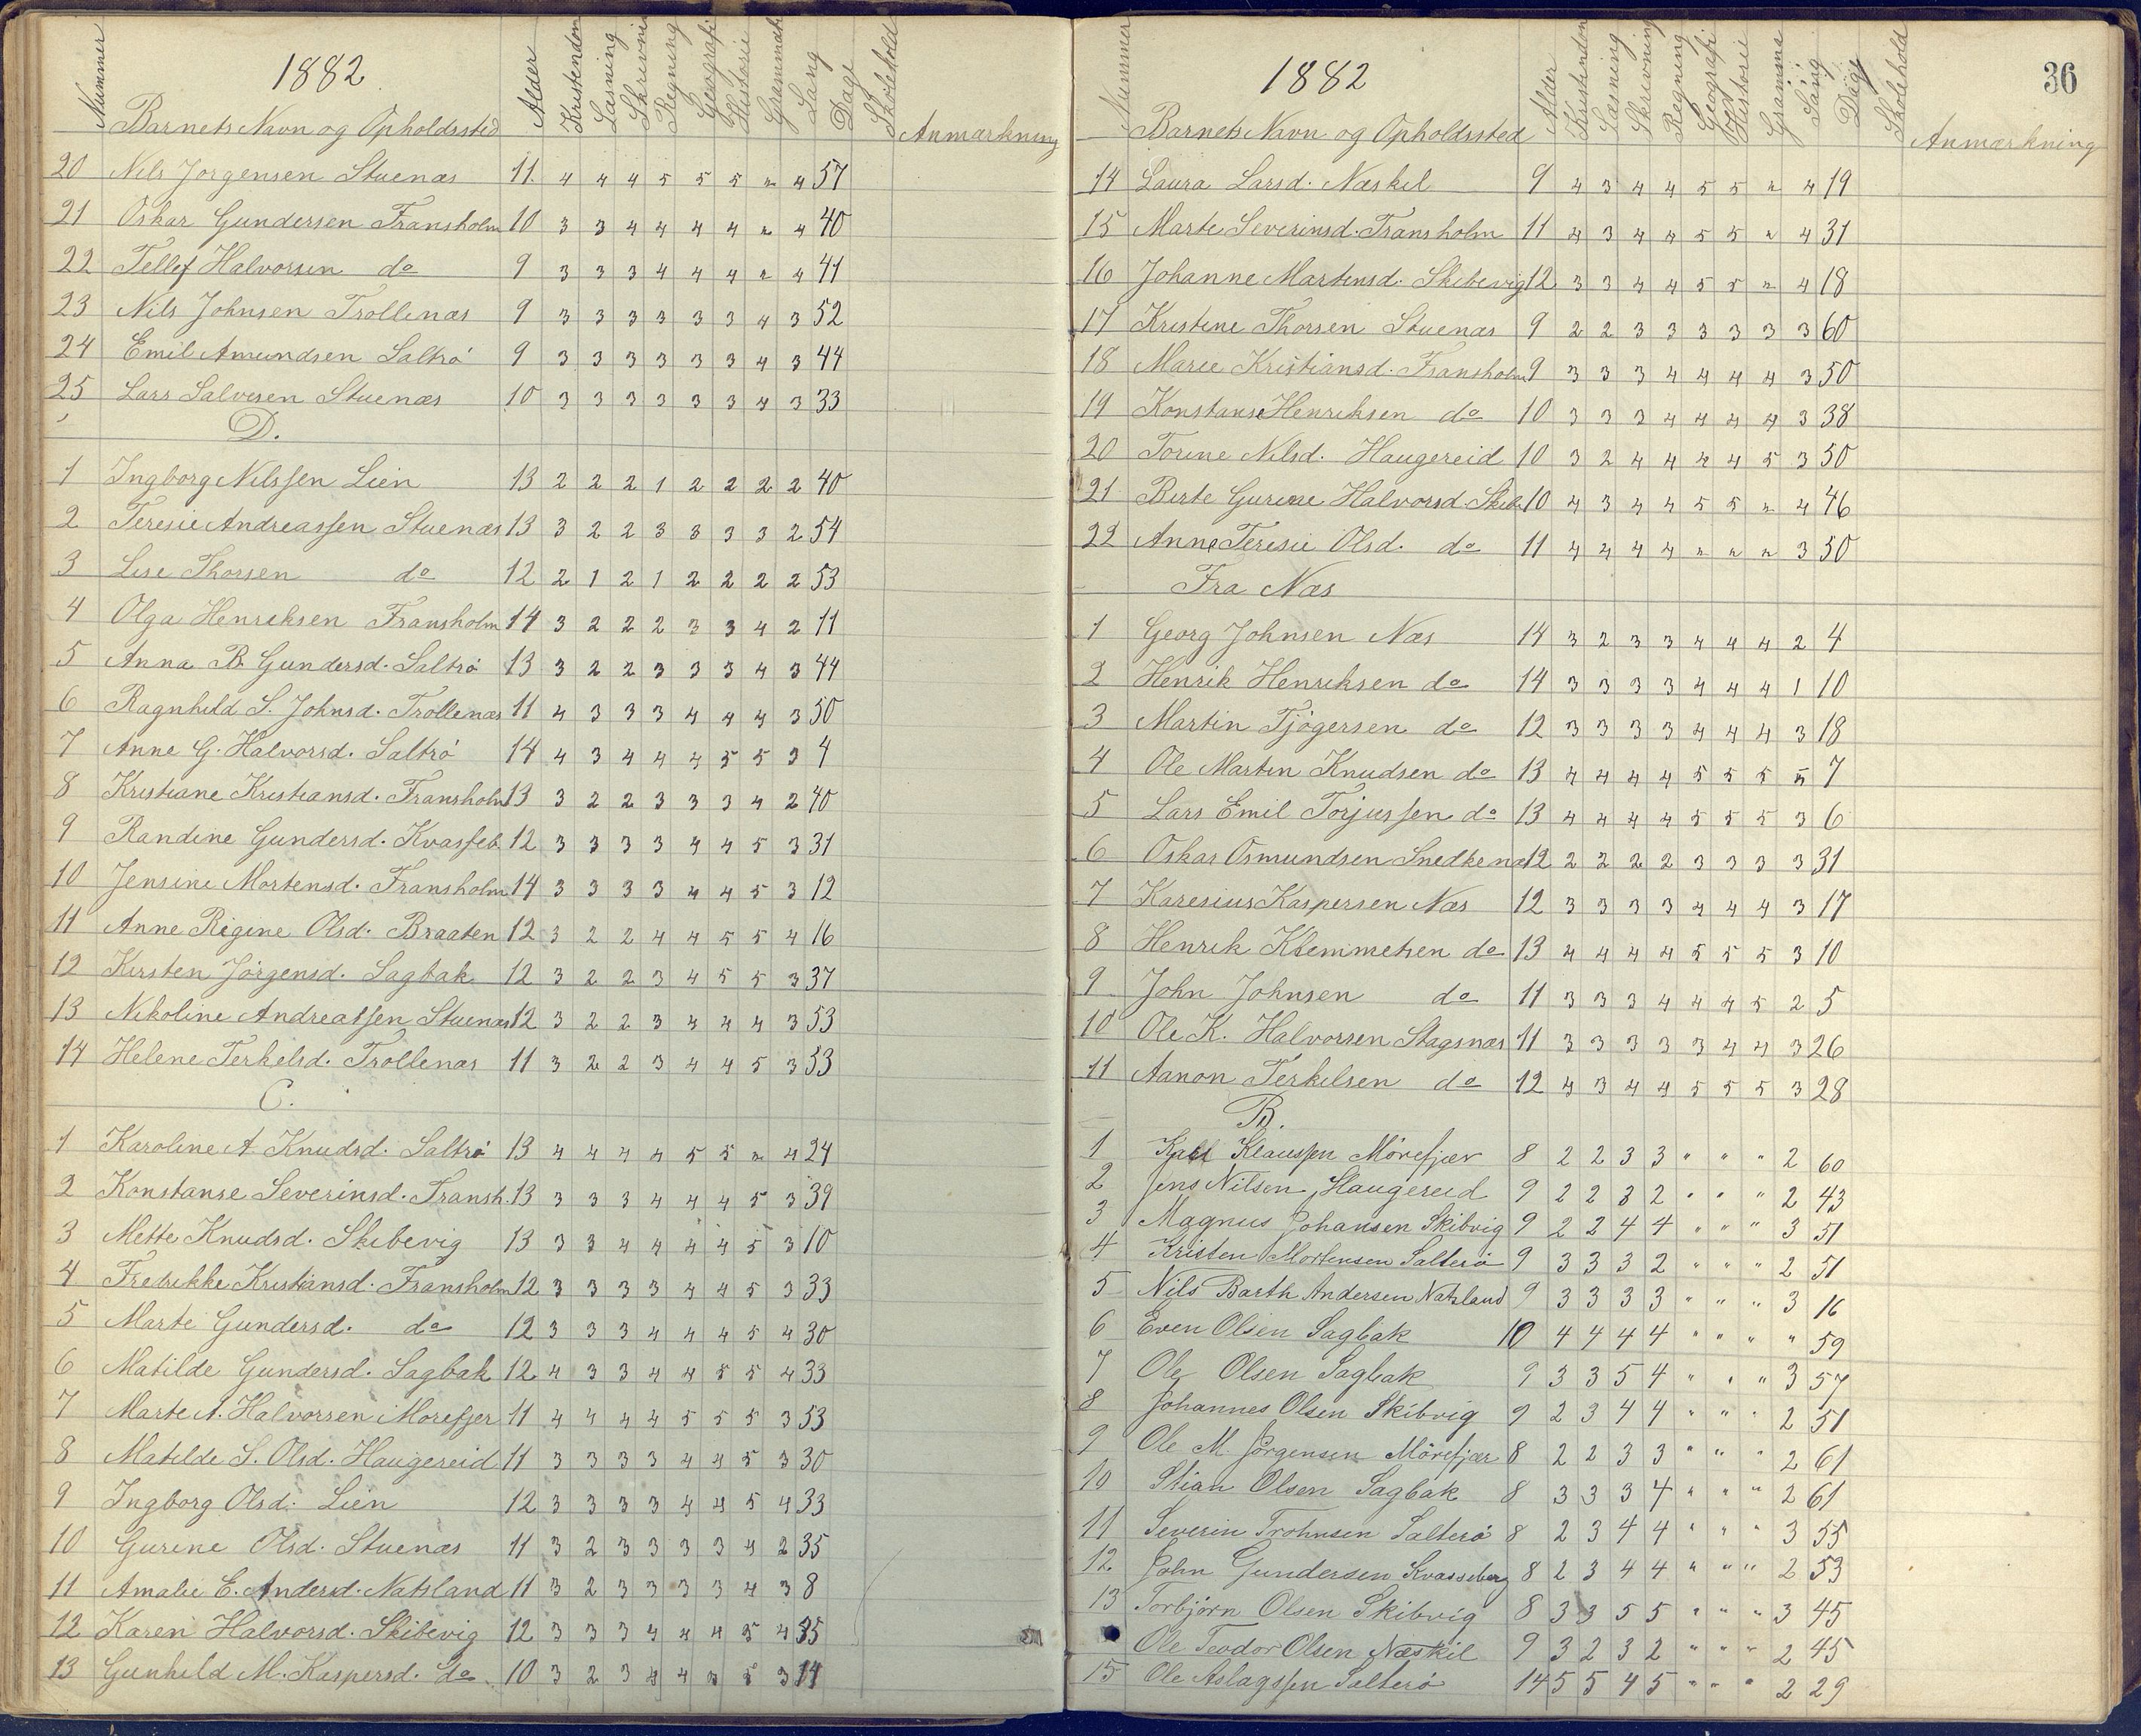 1882
Nummer Barnets Navn og Opholdssted Alder Kristendom Læsning Skrivning Regning Geografi Historie Grammatik Sang Dage Skolehold Anmærkning
20 Nils Jorgensen Stuenæs 11 4 4 4 5 5 5 " 4 57
21 Oskar Gundersen Fransholm 10 3 3 4 4 4 4 " 4 40
22 Tellef Halvorsen do 9 3 3 3 4 4 4 " 4 41
23 Nils Johnsen Trollenæs 9 3 3 3 3 3 3 4 3 52
24 Emil Amundsen Saltrö 9 3 3 3 3 3 3 4 3 44
25 Lars Salvesen Stuenæs 10 3 3 3 3 3 3 4 3 33
D.
1 Ingborg Nilssen Lien 13 2 2 2 1 2 2 2 2 40
2 Teresie Andreassen Stuenæs 13 3 2 2 3 3 3 3 2 54
3 Lise Thorsen do 12 2 1 2 1 2 2 2 2 53
4 Olga Henriksen Fransholm 14 3 2 2 2 3 3 4 2 11
5 Anna B. Gundersd. Saltrö 13 3 2 2 3 3 3 4 3 44
6 Ragnhild S. Johnsd. Trollenæs 11 4 3 3 3 4 4 4 3 50
7 Anne G. Halvorsd. Saltrö 14 4 3 4 4 4 5 5 3 4
8 Kristiane Kristiansd. Fransholm 13 3 2 2 3 3 3 4 2 40
9 Randine Gundersd. Kvasseb. 12 3 3 3 3 4 4 5 3 31
10 Jensine Mortensd. Fransholm 14 3 3 3 3 4 4 5 3 12
11 Anne Rigine Olsd. Braaten 12 3 2 2 4 4 5 5 4 16
12 Kirsten Jörgensd. Sagbak 12 3 2 2 3 4 5 5 3 37
13 Nikoline Andreassen Stuenæs 12 3 2 2 3 4 4 4 3 53
14 Helene Terkelsd. Trollenæs 11 3 2 2 3 4 4 5 3 53
C.
1 Karoline A Knudsd. Saltrö 13 4 4 4 4 5 5 " 4 24
2 Konstanse Severinsd. Fransh. 13 3 3 3 4 4 4 5 3 39
3 Mette Knudsd. Skibevig 13 3 3 4 4 4 4 5 3 10
4 Fredrikke Kristiansd. Fransholm 12 3 3 3 3 4 4 5 3 33
5 Marte Gundersd. do 12 3 3 3 4 4 4 5 4 30
6 Matilde Gundersd. Sagbak 12 4 3 3 4 4 5 5 4 33
7 Marte A. Halvorsen Morefjer 11 4 4 4 4 5 5 5 3 53
8 Matilde S. Olsd. Haugereid 11 3 3 3 3 4 4 5 3 30
9 Ingborg Olsd. Lien 12 3 3 3 3 4 4 5 4 33
10 Gurine Olsd. Stuenæs 11 3 2 3 3 3 3 4 2 35
11 Amalie E. Andersd. Natsland 11 3 2 3 3 3 3 4 3 8
12 Karen Halvorsd. Skibevig 12 3 3 3 4 4 4 5 4 35
13 Gunhild M. Kaspersd. do 10 3 2 3 4 4 3 14
36
1882
Nummer Barnets Navn og Opholdssted Alder Kristendom Læsning Skrivning Regning Geografi Historie Gramma Sang Dage Skolehold Anmærkning
14 Laura Larsd. Næskil 9 4 3 4 4 5 5 " 4 19
15 Marte Severinsd. Fransholm 11 4 3 4 4 5 5 " 4 31
16 Johanne Martensd. Skibevig 12 3 3 4 4 5 5 " 4 18
17 Kristine Thorsen Stuenæs 9 2 2 3 3 3 3 3 3 60
18 Marie Kristiansd. Fransholm 9 3 3 3 4 4 4 4 3 50
19 Konstanse Henriksen do 10 3 3 3 4 4 4 4 3 38
20 Torine Nilsd. Haugereid 10 3 2 4 4 4 4 5 3 50
21 Birte Gurine Halvorsd. Skib. 10 4 3 4 4 5 5 " 4 46
22 Anne Teresie Olsd. do 11 4 4 4 4 " " " 3 50
Fra Næs
1 Georg Johnsen Næs 14 3 2 3 3 4 4 4 2 4
2 Henrik Henriksen do 14 3 3 3 3 4 4 4 1 10
3 Martin Tjögersen do 12 3 3 3 3 4 4 4 3 18
4 Ole Martin Knudsen do 13 4 4 4 4 5 5 5 5 7
5 Lars Emil Torjussen do 13 4 4 4 4 5 5 5 3 6
6 Oskar Osmundsen Snedkenæs 12 2 2 2 2 3 3 3 3 31
7 Karesius Kaspersen Næs 12 3 3 3 3 4 4 4 3 17
8 Henrik Klemmetsen do 13 4 4 4 4 5 5 5 3 10
9 John Johnsen do 11 3 3 3 4 4 4 5 2 5
10 Ole K. Halvorsen Stagsnæs 11 3 3 3 3 3 4 4 3 26
11 Aanon Terkilsen do 12 4 3 4 4 5 5 5 3 28
B.
1 Karl Klaussen Mörefjær 8 2 2 3 3 " " " 2 60
2 Jens Nilsen, Haugereid 9 2 2 3 2 " " " 2 43
3 Magnus Johansen Skibvig 9 2 2 4 4 " " " 3 51
4 Kristen Mortensen Salterö 9 3 3 3 2 " " " 2 51
5 Nils Barth Andersen Natsland 9 3 3 3 3 " " " 3 16
6 Even Olsen Sagbak 10 4 4 4 4 " " " " 59
7 Ole Olsen Sagbak 9 3 3 5 4 " " " 3 57
8 Johannes Olsen Skibvig 9 2 3 4 4 " " " 2 51
9 Ole M. Jörgensen Mörefjær 8 2 2 3 3 " " " 2 61
10 Stian Olsen Sagbak 8 3 3 3 4 " " " 2 61
11 Severin Trohnsen Salterö 8 2 3 4 4 " " " 3 55
12 John Gundersen Kvasseberg 8 2 3 4 4 " " " 2 53
13 Torbjörn Olsen Skibvig 8 3 3 5 5 " " " 3 45
Ole Teodor Olsen Næskil 9 3 2 3 2 " " " 2 45
15 Ole Aslagssen Salterö 14 5 5 4 5 " " " 2 29